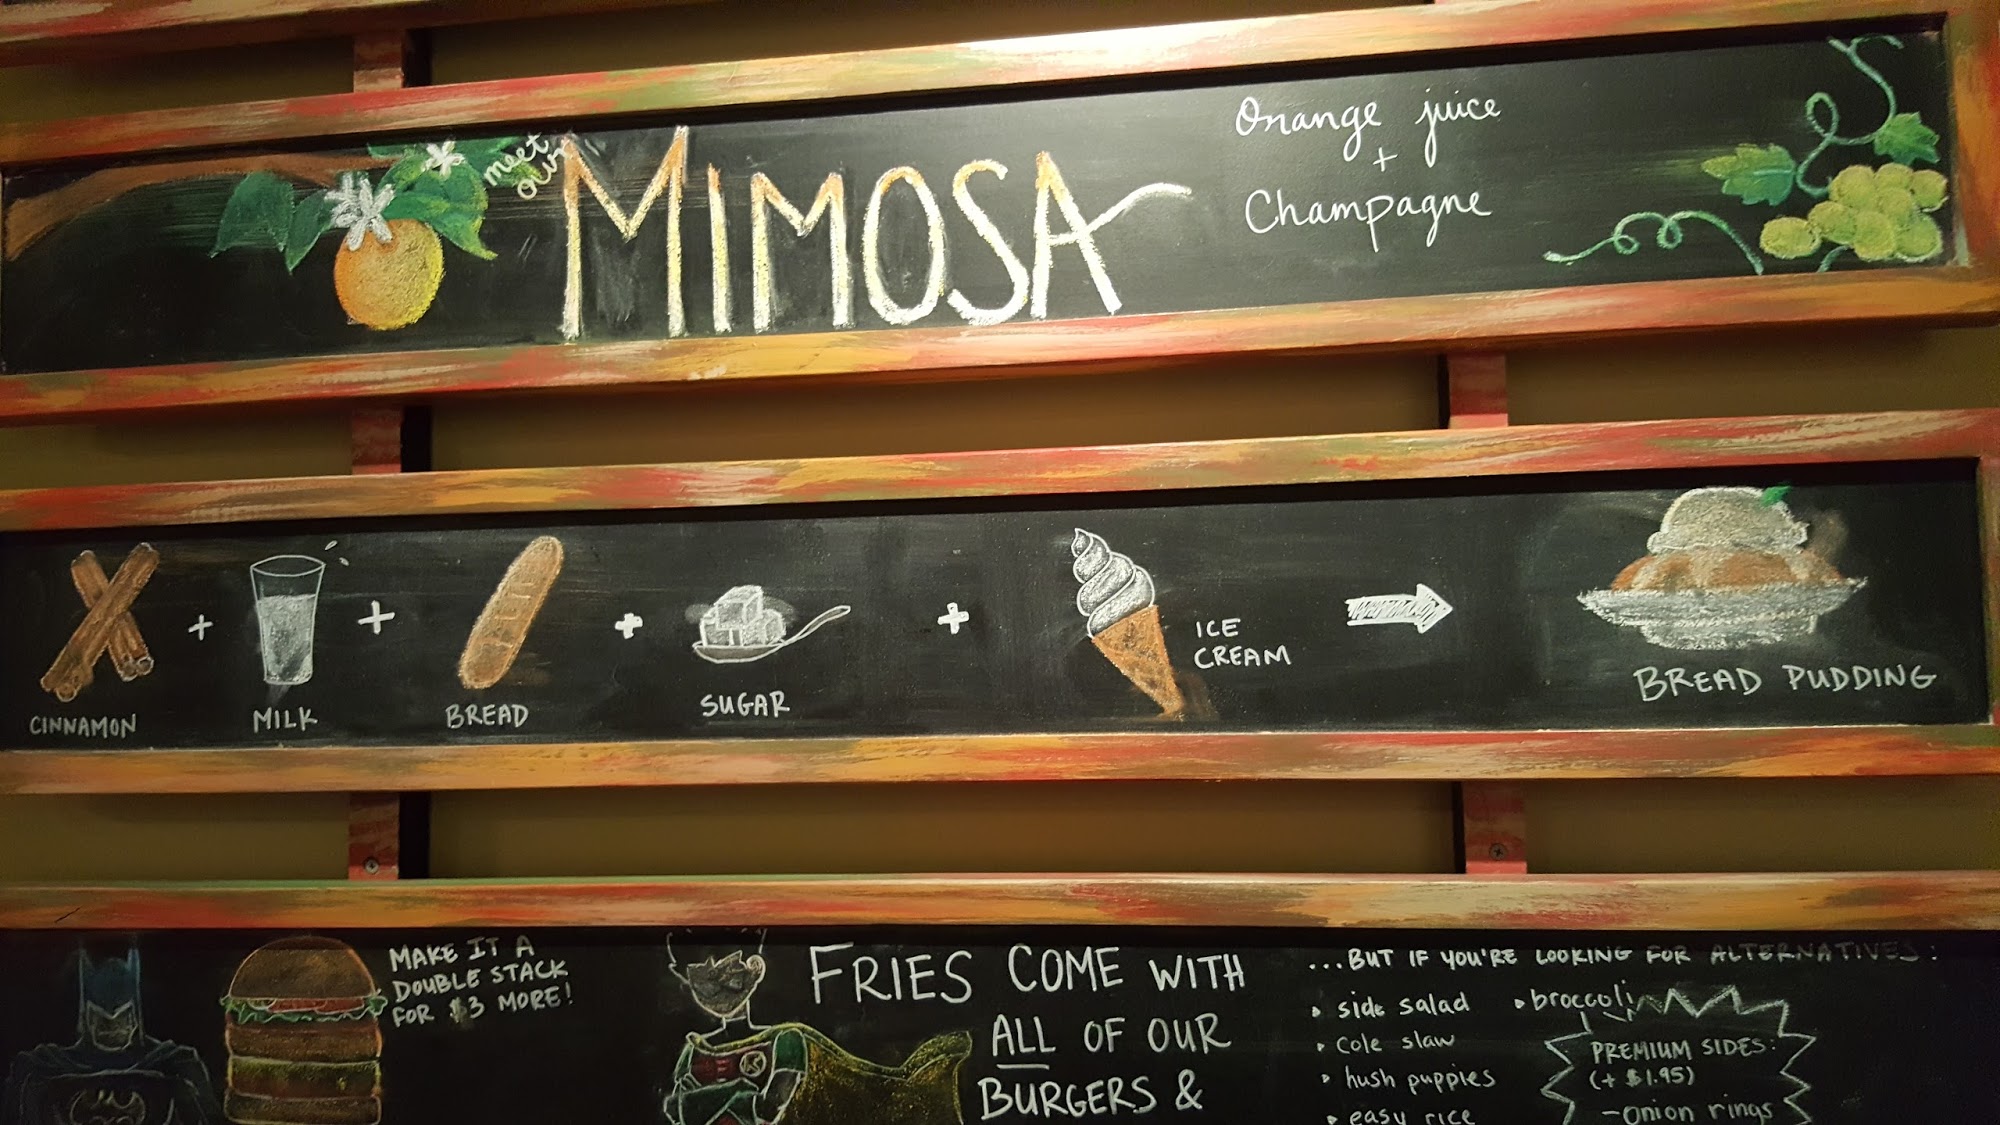 meet
our
MIMOSA
Orange juice
+
Champagne
+ + + +
CINNAMON
MILK
BREAD
SUGAR
ICE
CREAM
BREAD PUDDING
MAKE IT A
DOUBLE STACK
FOR $3 MORE!
R
FRIES COME WITH
ALL OF OUR
BURGERS &
...BUT IF YOU'RE LOOKING FOR ALTERNATIVES:
• side salad
• cole slaw
• hush puppies
• easy rice
• broccoli
PREMIUM SIDES:
(+ $1.95)
- onion rings